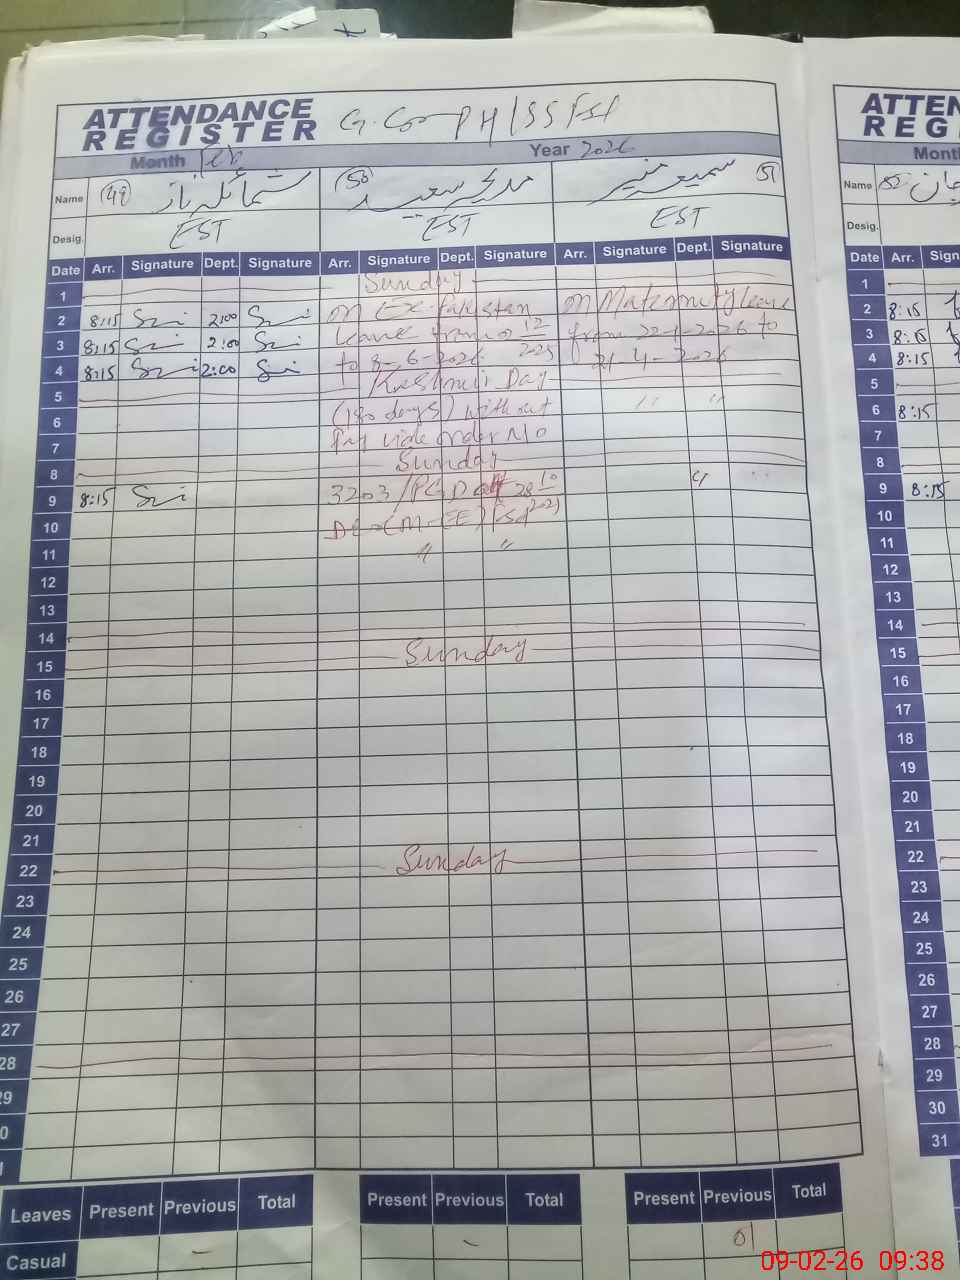 ATTENDANCE REGISTER
Month Feb Year 2026
Name 49 شمائلہ ناز 50 مدیحہ سعید سمیعہ منیر 51
Desig. EST EST EST
Date Arr. Signature Dept. Signature Arr. Signature Dept. Signature Arr. Signature Dept. Signature
1 Sunday
2 8:15 2:00 On Ex-Pakistan On Maternity leave
3 8:15 2:00 leave from 12 from 22-1-2026 to
4 8:15 2:00 to 8-6-2026 2025 21-4-2026
5 Kashmir Day
6 (180 days) without " "
7 Pay vide order No
8 Sunday
9 8:15 3203/ 28 10 "
10 DEO (M-EE) 2025
11 " "
12
13
14
15 Sunday
16
17
18
19
20
21
22 Sunday
23
24
25
26
27
28
29
30
31
Leaves Present Previous Total Present Previous Total Present Previous Total
Casual - - 01
ATTEN
REG
Month
Name 52 جان
Desig.
Date Arr. Sign
1
2 8:15
3 8:15
4 8:15
5
6 8:15
7
8
9 8:15
10
11
12
13
14
15
16
17
18
19
20
21
22
23
24
25
26
27
28
29
30
31
09-02-26 09:38